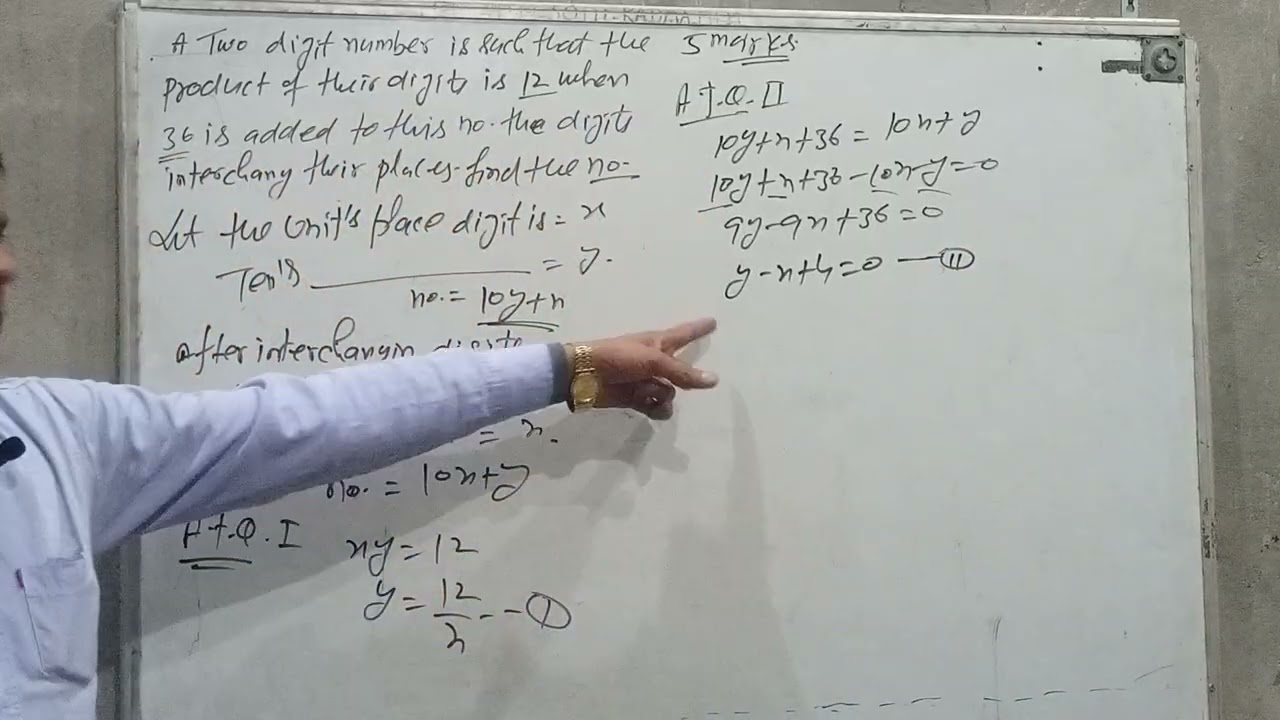 A Two digit number is such that the
product of their digits is 12 when
36 is added to this no. the digits
interchang their places. find the no.
Let the Unit's place digit is = x
Ten's ———— = y.
no. = 10y+x
after interchangin digits
= x.
no. = 10x+y
A.T.Q. I
xy = 12
y = 12/x -- (I)
5 marks.
A.T.Q. II
10y+x+36 = 10x+y
10y+x+36-10x-y=0
9y-9x+36=0
y-x+4=0 — (II)